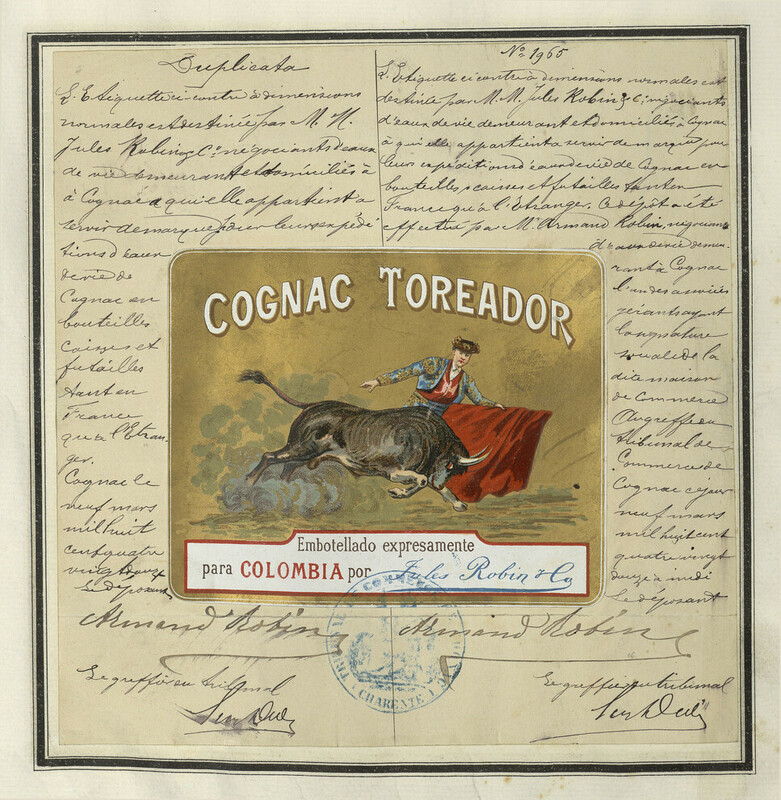 Duplicata
L'Etiquette ci contre à dimensions
normales est destinée par M. M.
Jules Robin & Cie négociants d'eaux
de vie demeurant et domiciliés à
à Cognac a qui elle appartient à
servir de marque pour leurs expédi
tions d'eaux
de vie de
Cognac en
bouteilles
caisses et
futailles
tant en
France
qu'à l'Etran-
ger.
Cognac le
neuf mars
mil huit
cent quatre
vingt douze
Le déposant
Armand Robin
Le greffier du tribunal
No 1965
L'Etiquette ci contre à dimensions normales est
destinée par M. M. Jules Robin & Cie négociants
d'eaux de vie demeurant et domiciliés à Cognac
à qui elle appartient a servir de marque pour
leurs expéditions d'eaux de vie de Cognac en
bouteilles, caisses et futailles tant en
France qu'à l'Etranger. Ce dépôt a été
effectué par Mr Armand Robin, négociant
d'eaux de vie demeu-
rant à Cognac
l'un des associés
gérants ayant
la signature
sociale de la
dite maison
de Commerce
Au greffe du
tribunal de
Commerce de
Cognac ce jour
neuf mars
mil huit cent
quatre vingt
douze à midi
Le déposant
Armand Robin
Le greffier du tribunal
COGNAC TOREADOR
Embotellado expresamente
para COLOMBIA por Jules Robin & Co
TRIBUNAL DE COMMERCE
CHARENTE